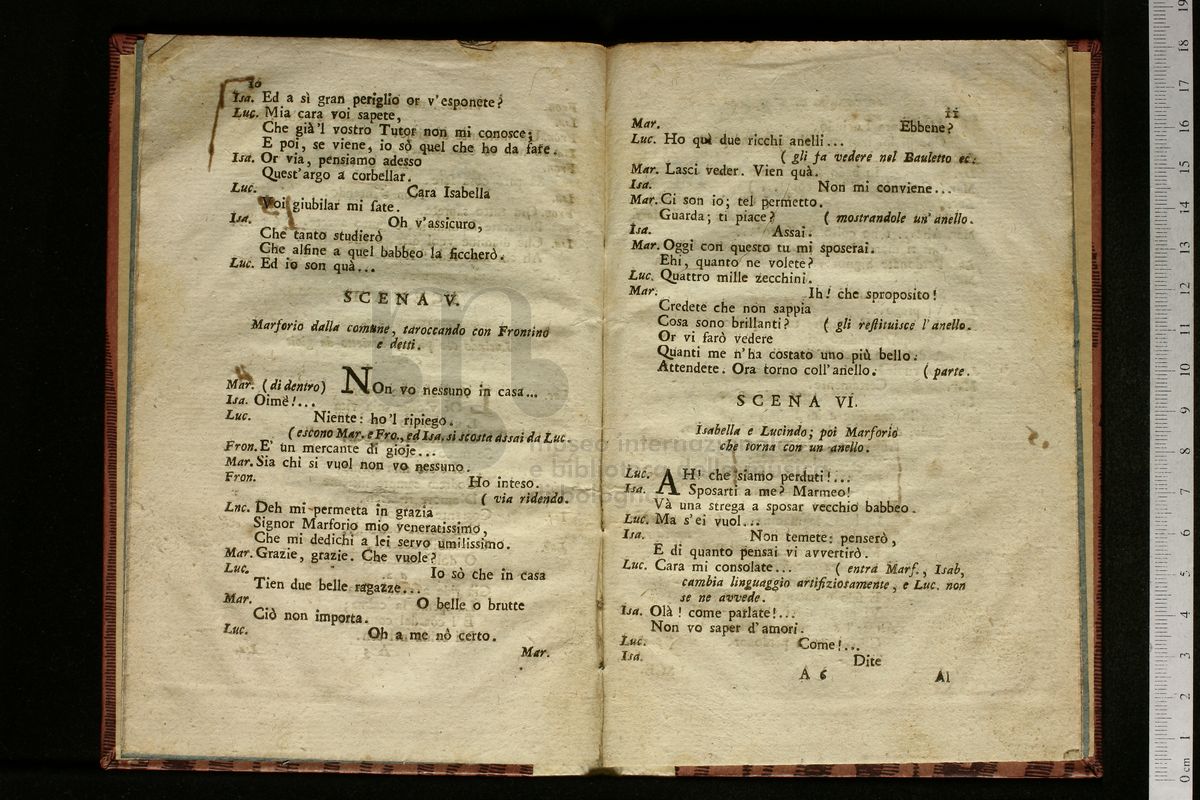 10
Isa. Ed a sì gran periglio or v'esponete?
Luc. Mia cara voi sapete,
Che già'l vostro Tutor non mi conosce;
E poi, se viene, io sò quel che ho da fare.
Isa. Or via, pensiamo adesso
Quest'argo a corbellar.
Luc. Cara Isabella
Voi giubilar mi fate.
Isa. Oh v'assicuro,
Che tanto studierò
Che alfine a quel babbeo la ficcherò.
Luc. Ed io son quà...
SCENA V.
Marforio dalla comune, taroccando con Frontino
e detti.
Mar. (di dentro) NOn vo nessuno in casa...
Isa. Oimè!...
Luc. Niente: ho'l ripiego.
(escono Mar. e Fro., ed Isa. si scosta assai da Luc.
Fron. E' un mercante di gioje...
Mar. Sia chi si vuol non vo nessuno.
Fron. Ho inteso.
(via ridendo.
Luc. Deh mi permetta in grazia
Signor Marforio mio veneratissimo,
Che mi dedichi a lei servo umilissimo.
Mar. Grazie, grazie. Che vuole?
Luc. Io sò che in casa
Tien due belle ragazze...
Mar. O belle o brutte
Ciò non importa.
Luc. Oh a me nò certo.
Mar.
11
Mar. Ebbene?
Luc. Ho quì due ricchi anelli...
(gli fa vedere nel Bauletto ec.
Mar. Lasci veder. Vien quà.
Isa. Non mi conviene...
Mar. Ci son io; tel permetto.
Guarda; ti piace? (mostrandole un'anello.
Isa. Assai.
Mar. Oggi con questo tu mi sposerai.
Ehi, quanto ne volete?
Luc. Quattro mille zecchini.
Mar. Ih! che sproposito!
Credete che non sappia
Cosa sono brillanti? (gli restituisce l'anello.
Or vi farò vedere
Quanti me n'ha costato uno più bello.
Attendete. Ora torno coll'anello. (parte.
SCENA VI.
Isabella e Lucindo; poi Marforio
che torna con un anello.
Luc. AH! che siamo perduti!...
Isa. Sposarti a me? Marmeo!
Và una strega a sposar vecchio babbeo.
Luc. Ma s'ei vuol...
Isa. Non temete: penserò,
E di quanto pensai vi avvertirò.
Luc. Cara mi consolate... (entra Marf., Isab,
cambia linguaggio artifiziosamente, e Luc. non
se ne avvede.
Isa. Olà! come parlate!...
Non vo saper d'amori.
Luc. Come!...
Isa. Dite
A 6 Al